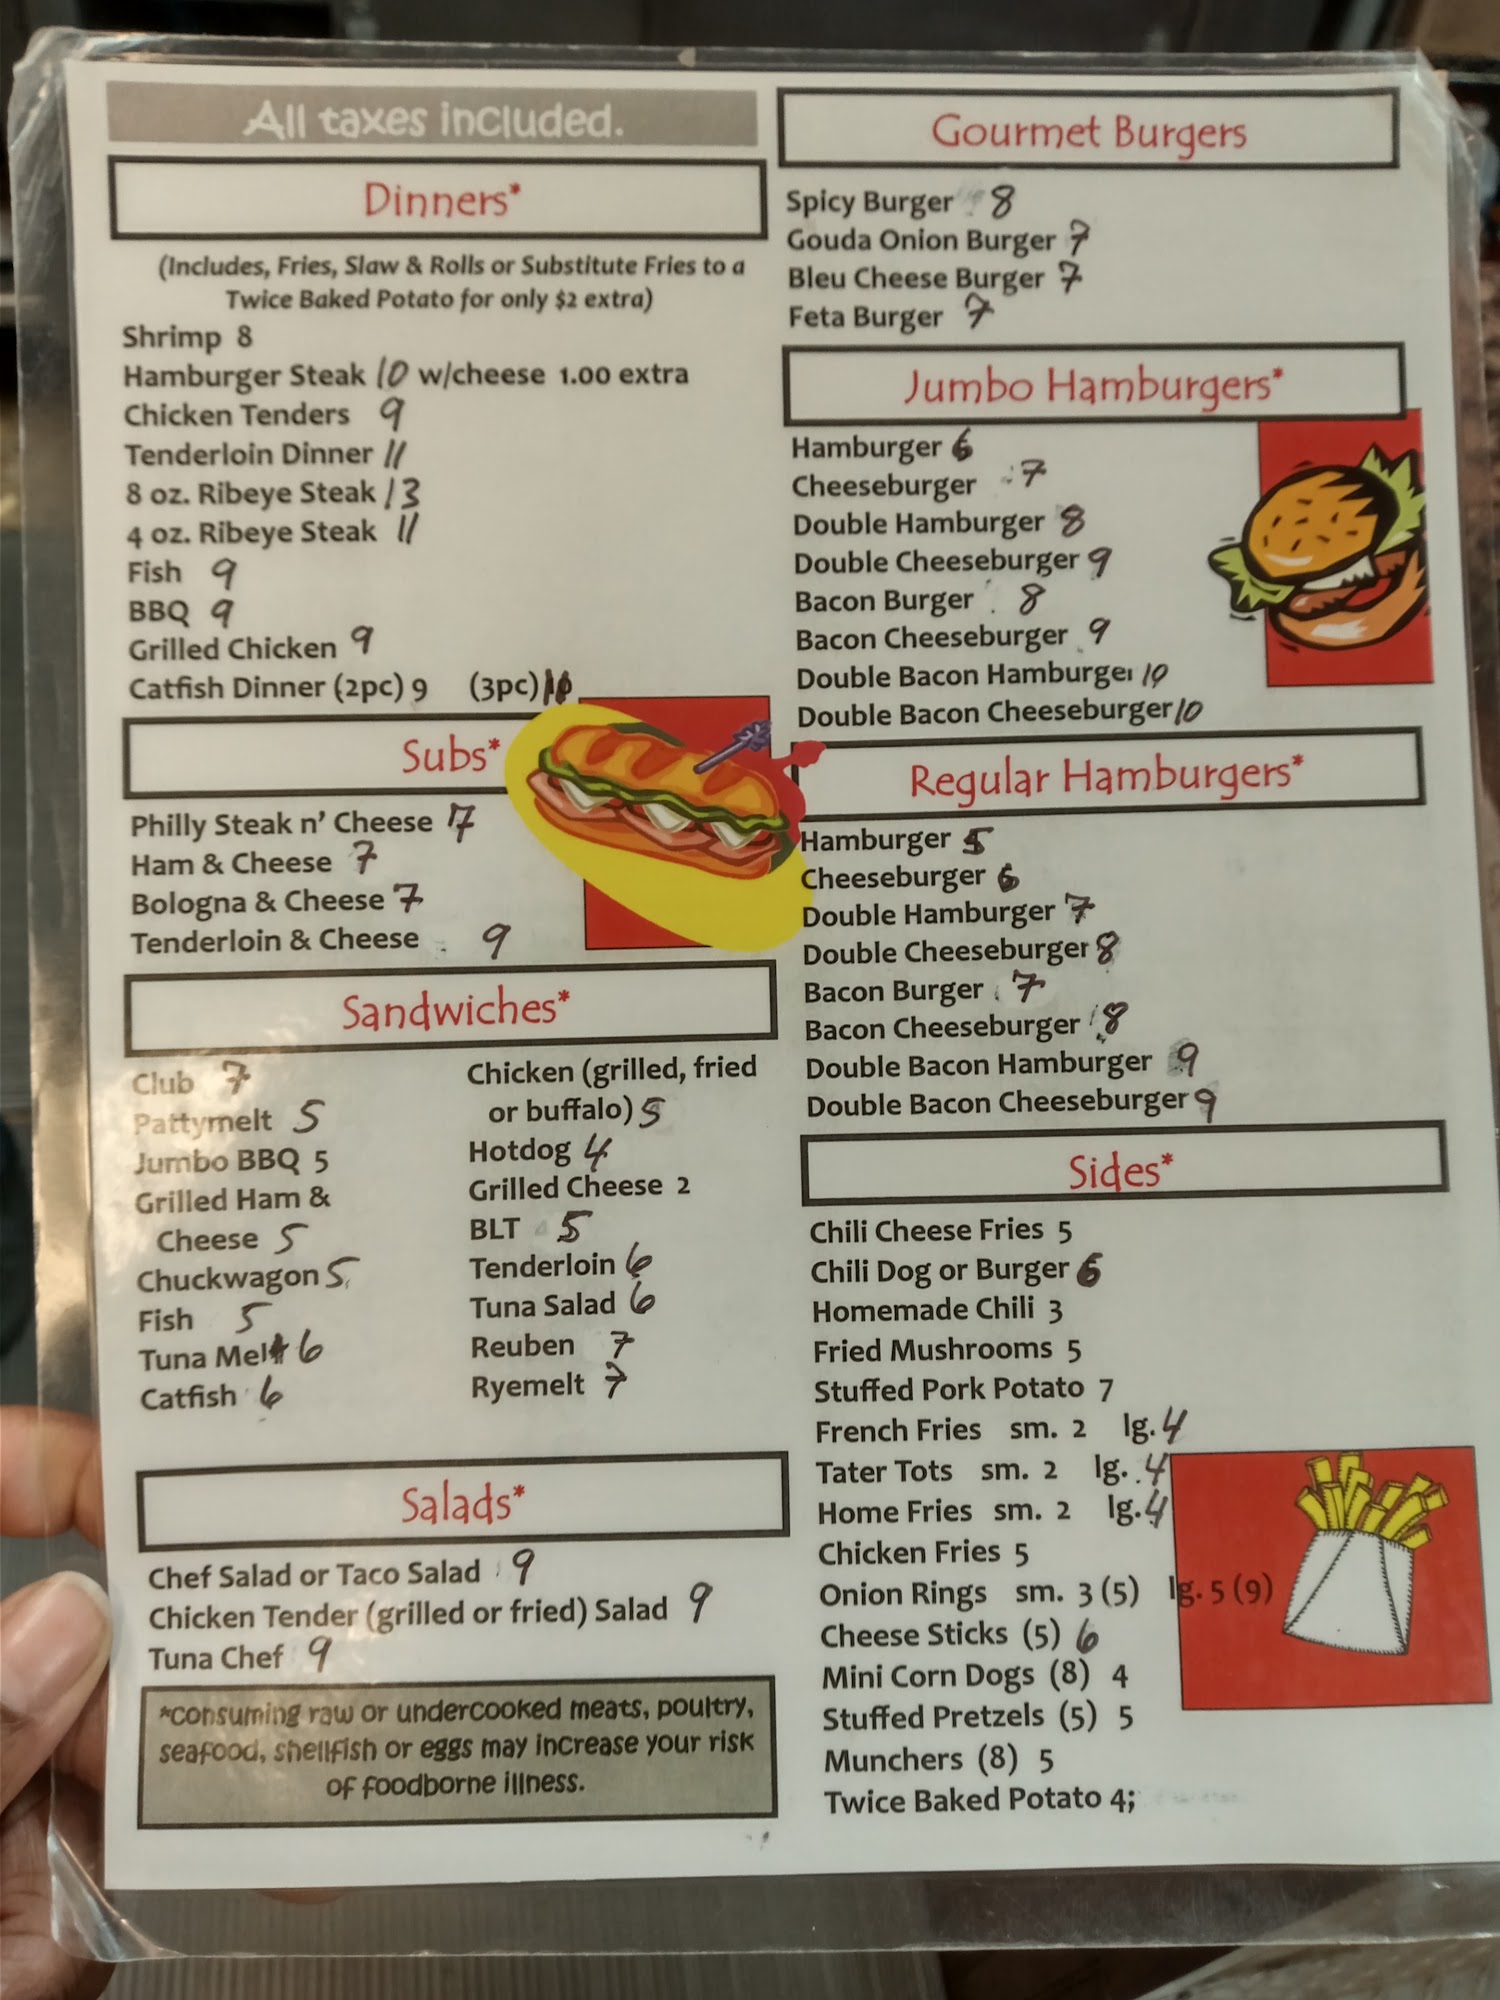 All taxes included.
Dinners*
(Includes, Fries, Slaw & Rolls or Substitute Fries to a
Twice Baked Potato for only $2 extra)
Shrimp 8
Hamburger Steak 10 w/cheese 1.00 extra
Chicken Tenders 9
Tenderloin Dinner 11
8 oz. Ribeye Steak 13
4 oz. Ribeye Steak 11
Fish 9
BBQ 9
Grilled Chicken 9
Catfish Dinner (2pc) 9 (3pc)
Subs*
Philly Steak n' Cheese 7
Ham & Cheese 7
Bologna & Cheese 7
Tenderloin & Cheese 9
Sandwiches*
Club 7
Pattymelt 5
Jumbo BBQ 5
Grilled Ham &
Cheese 5
Chuckwagon 5
Fish 5
Tuna Melt 6
Catfish 6
Chicken (grilled, fried
or buffalo) 5
Hotdog 4
Grilled Cheese 2
BLT 5
Tenderloin 6
Tuna Salad 6
Reuben 7
Ryemelt 7
Salads*
Chef Salad or Taco Salad 9
Chicken Tender (grilled or fried) Salad 9
Tuna Chef 9
*consuming raw or undercooked meats, poultry,
seafood, shellfish or eggs may increase your risk
of foodborne illness.
Gourmet Burgers
Spicy Burger 8
Gouda Onion Burger 7
Bleu Cheese Burger 7
Feta Burger 7
Jumbo Hamburgers*
Hamburger 6
Cheeseburger 7
Double Hamburger 8
Double Cheeseburger 9
Bacon Burger 8
Bacon Cheeseburger 9
Double Bacon Hamburger 10
Double Bacon Cheeseburger 10
Regular Hamburgers*
Hamburger 5
Cheeseburger 6
Double Hamburger 7
Double Cheeseburger 8
Bacon Burger 7
Bacon Cheeseburger 8
Double Bacon Hamburger 9
Double Bacon Cheeseburger 9
Sides*
Chili Cheese Fries 5
Chili Dog or Burger 6
Homemade Chili 3
Fried Mushrooms 5
Stuffed Pork Potato 7
French Fries sm. 2 lg. 4
Tater Tots sm. 2 lg. 4
Home Fries sm. 2 lg. 4
Chicken Fries 5
Onion Rings sm. 3 (5) lg. 5 (9)
Cheese Sticks (5) 6
Mini Corn Dogs (8) 4
Stuffed Pretzels (5) 5
Munchers (8) 5
Twice Baked Potato 4;